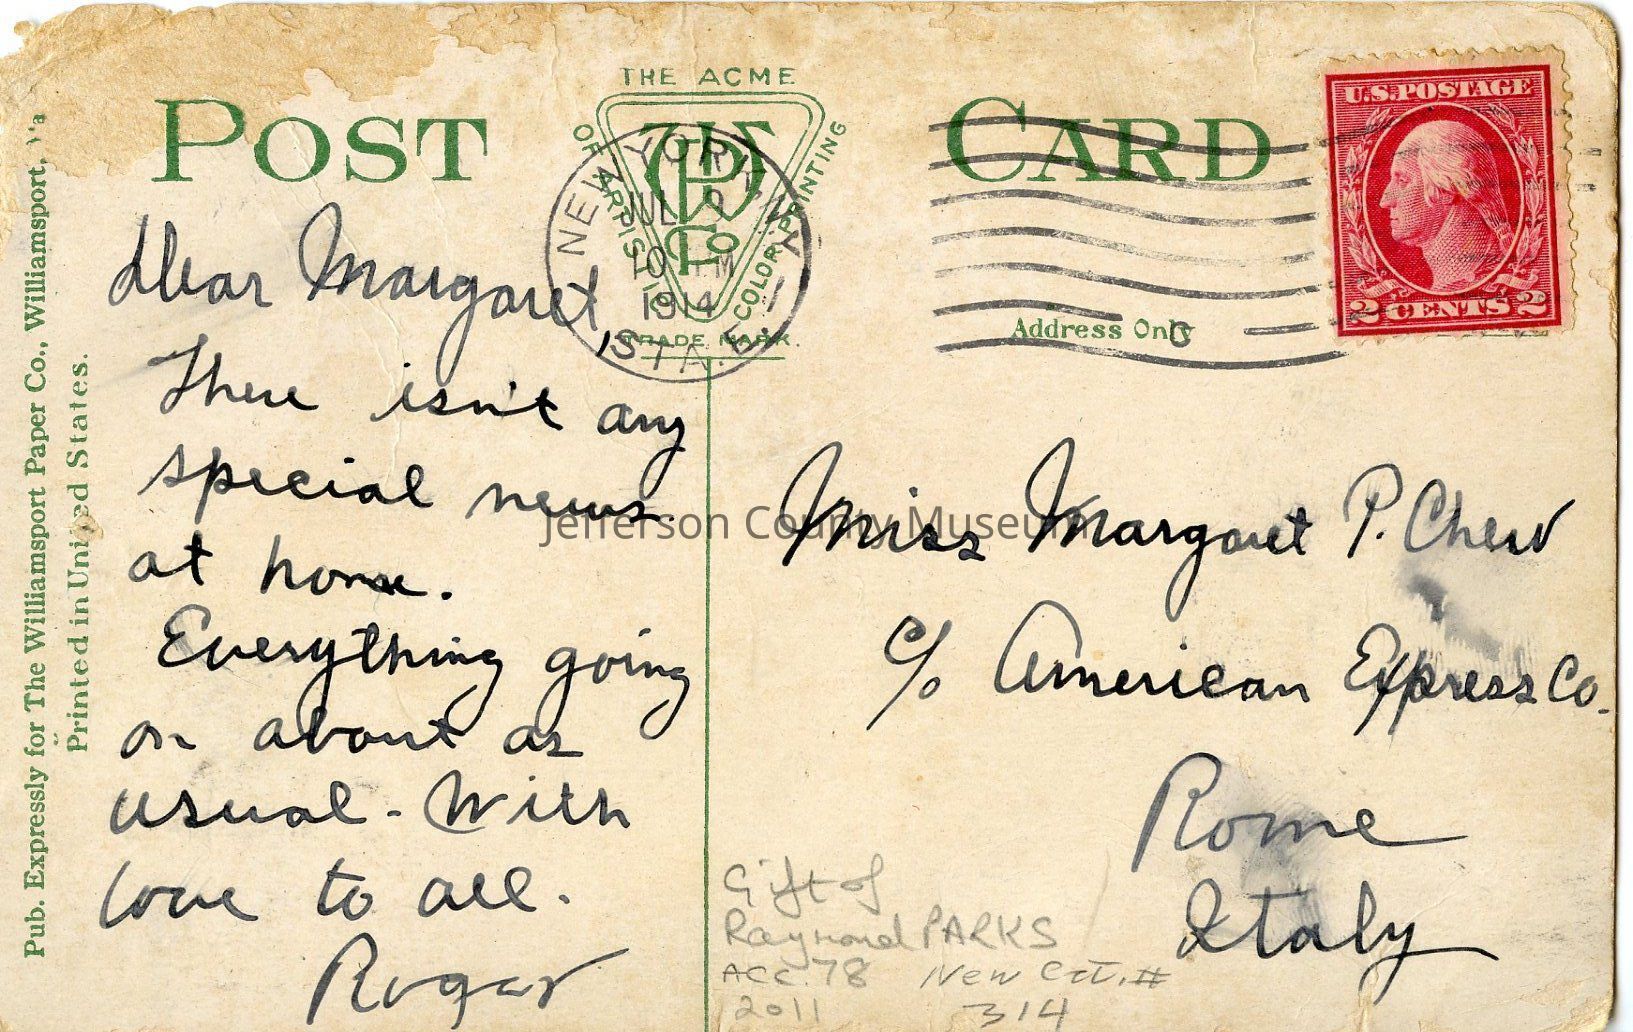 THE ACME
OF ARTISTIC
COLOR PRINTING
TRADE MARK.
POST CARD
U.S. POSTAGE
2 CENTS 2
NEW YORK, N.Y.
JUL
PM
1914
STA.
Address Only
Pub. Expressly for The Williamsport Paper Co., Williamsport,
Printed in United States.
Dear Margaret,
There isn't any
special news
at home.
Everything going
on about as
usual - With
love to all.
Roger
Miss Margaret P. Chew
c/o American Express Co.
Rome
Italy
Jefferson County Museum
Gift of
Raymond PARKS
ACC. 78 New Cat. #
2011 314